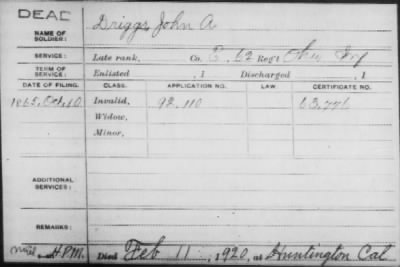 DEAD
NAME OF SOLDIER: Driggs John A
SERVICE: Late rank, Co. E, 62 Reg't Ohio Inf
TERM OF SERVICE: Enlisted , 1 Discharged , 1
DATE OF FILING. CLASS. APPLICATION NO. LAW. CERTIFICATE NO.
1865, Oct. 10 Invalid, 92,110 63,776
Widow,
Minor,
ADDITIONAL SERVICES:
REMARKS:
Died Feb 11, 1920, at Huntington Cal